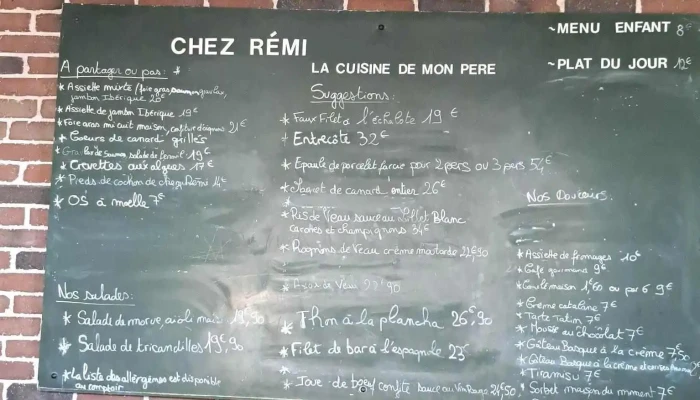 CHEZ RÉMI
LA CUISINE DE MON PERE
~MENU ENFANT 8€
~PLAT DU JOUR 12€
A partager ou pas: *
* Assiette mixte (foie gras, saumon gravlax,
jambon Ibérique 25€
* Assiette de jambon Ibérique 19€
* Foie gras mi cuit maison, 21€
* Coeurs de canard grillés
saumon salade de fenouil 19€
* Crevettes aux algues 17€
* Pieds de cochon de chez Rémi 14€
* OS à moelle 7€
Nos salades:
* Salade de morue, aioli mais 19€,90
* Salade de tricandilles 19€,90
* La liste des allergènes est disponible
au comptoir
Suggestions:
* Faux Filet à l'échalote 19€
* Entrecôte 32€
* Epaule de porcelet farcie pour 2 pers ou 3 pers 54€
* de canard entier 26€
*
* Ris de Veau sauce au Lillet Blanc
carottes et champignons 34€
* Rognons de Veau crème moutarde 22€90
* Veau 22€90
* Thon à la plancha 26€,90
* Filet de bar à l'espagnole 23€
*
* Joue de boeuf confite sauce au Vin Rouge 24€,50
Nos Douceurs:
* Assiette de fromages 10€
* Café gourmand 9€
* Canelé maison 1€60 ou par 6 9€
* Crème catalane 7€
* Tarte Tatin 7€
* Mousse au chocolat 7€
* Gâteau Basque à la crème 7€50
* Gâteau Basque à la crème et cerises
* Tiramisu 7€
* Sorbet maison du moment 7€